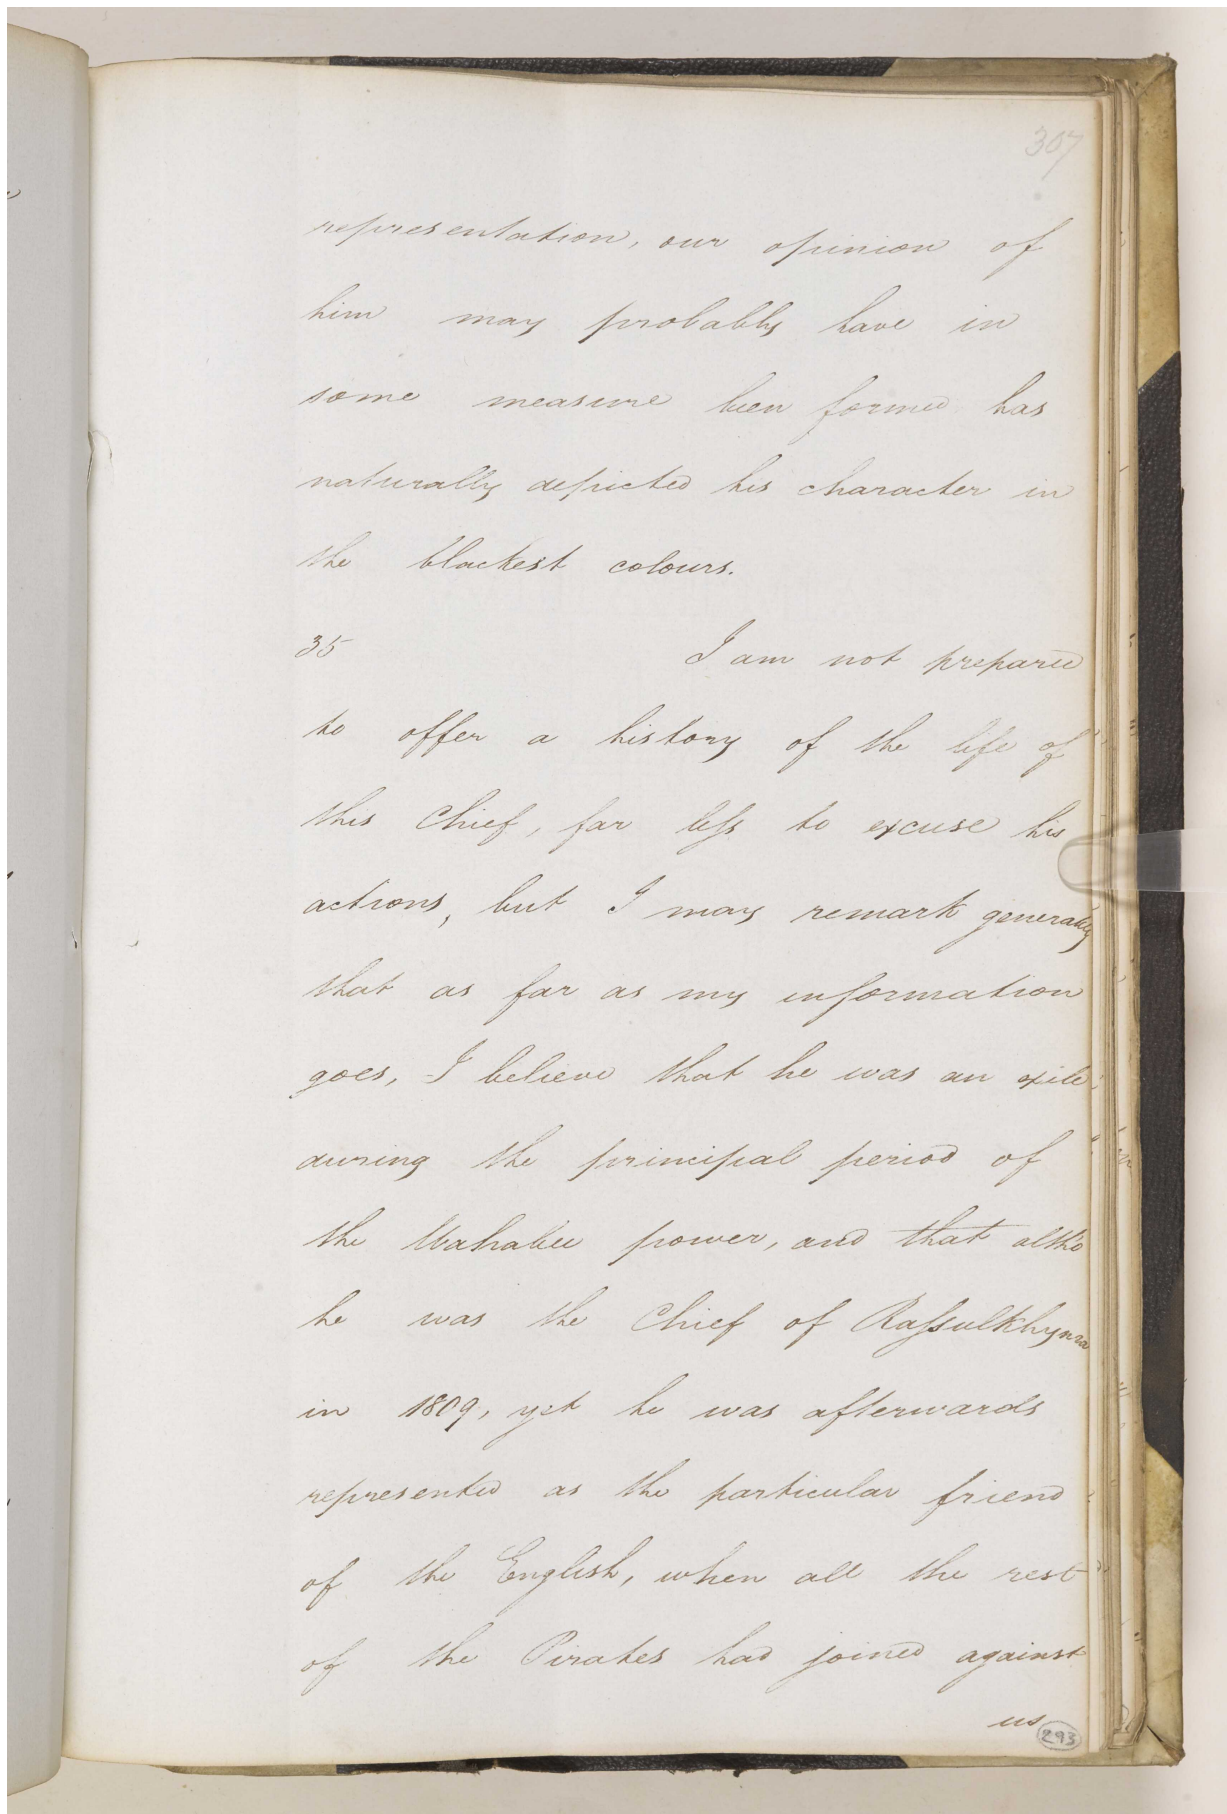 307
representation, our opinion of
him may probably have in
some measure been formed has
naturally depicted his character in
the blackest colours.
35 I am not prepared
to offer a history of the life of
this Chief, far less to excuse his
actions, but I may remark generally
that as far as my information
goes, I believe that he was an exile
during the principal period of
the Wahabee power, and that altho
he was the Chief of Rassulkhyma
in 1809, yet he was afterwards
represented as the particular friend
of the English, when all the rest
of the Pirates had joined against
us
293